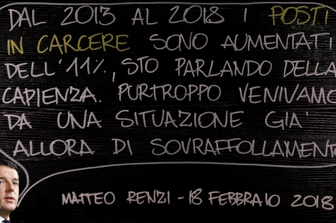 DAL 2013 AL 2018 I POSTI
IN CARCERE SONO AUMENTATI
DELL'11%, STO PARLANDO DELLA
CAPIENZA. PURTROPPO VENIVAMO
DA UNA SITUAZIONE GIA'
ALLORA DI SOVRAFFOLLAMENTO
MATTEO RENZI - 18 FEBBRAIO 2018